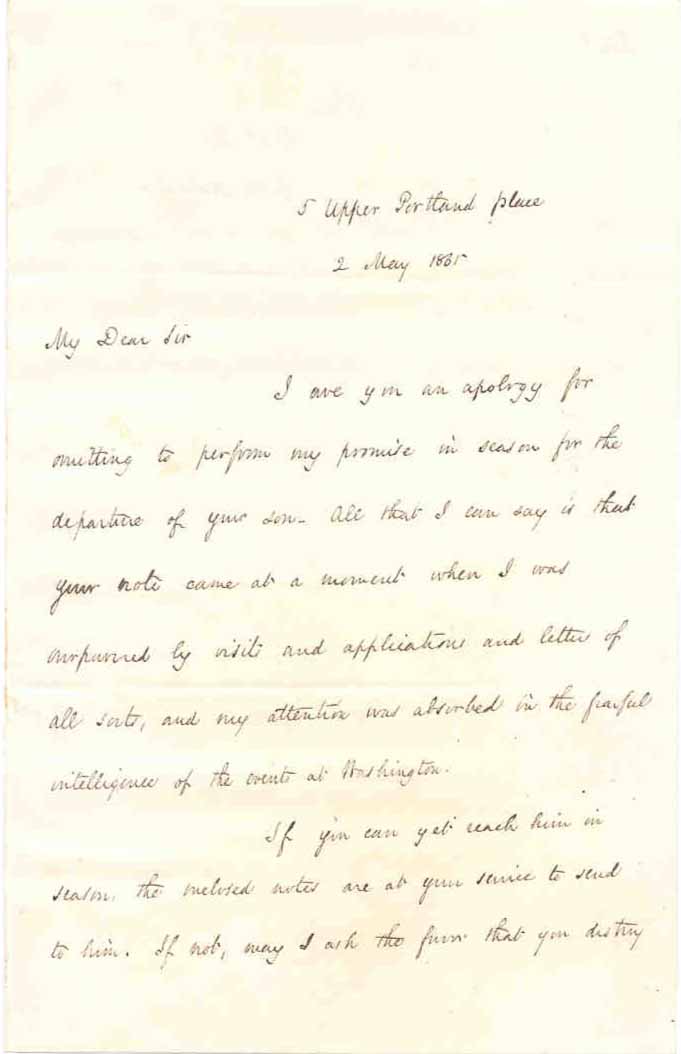 5 Upper Portland place
2 May 1865
My Dear Sir
I owe you an apology for
omitting to perform my promise in season for the
departure of your son. All that I can say is that
your note came at a moment when I was
overpowered by visits and applications and letters of
all sorts, and my attention was absorbed in the fearful
intelligence of the events at Washington.
If you can yet reach him in
season, the enclosed notes are at your service to send
to him. If not, may I ask the favor that you destroy